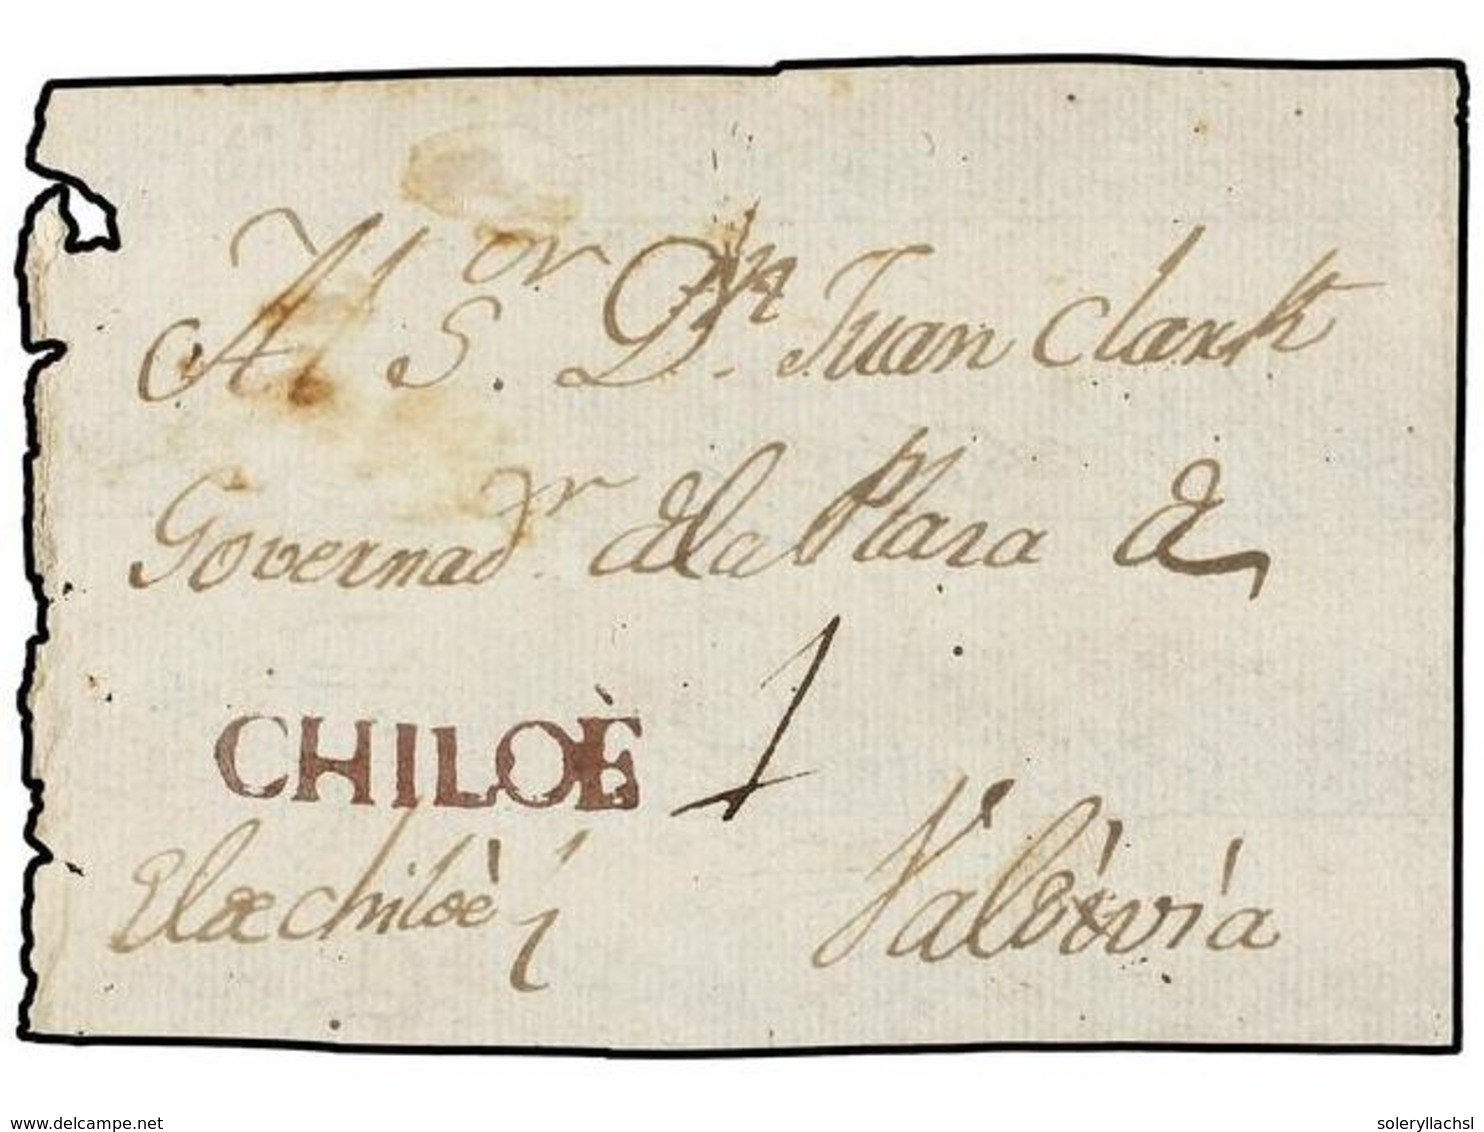 Al S.or D.n Juan Clark
Governad.r dela Plaza de
CHILOÈ 1
El de Chiloè
Valdivia
delcampe.net
soleryllachsl